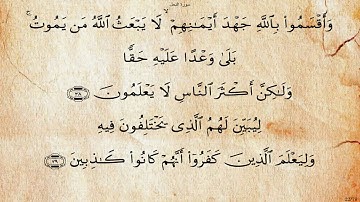 وَأَقْسَمُوا۟ بِٱللَّهِ جَهْدَ أَيْمَـٰنِهِمْ ۙ لَا يَبْعَثُ ٱللَّهُ مَن يَمُوتُ ۚ
بَلَىٰ وَعْدًا عَلَيْهِ حَقًّا
وَلَـٰكِنَّ أَكْثَرَ ٱلنَّاسِ لَا يَعْلَمُونَ ٣٨
لِيُبَيِّنَ لَهُمُ ٱلَّذِى يَخْتَلِفُونَ فِيهِ
وَلِيَعْلَمَ ٱلَّذِينَ كَفَرُوٓا۟ أَنَّهُمْ كَانُوا۟ كَـٰذِبِينَ ٣٩